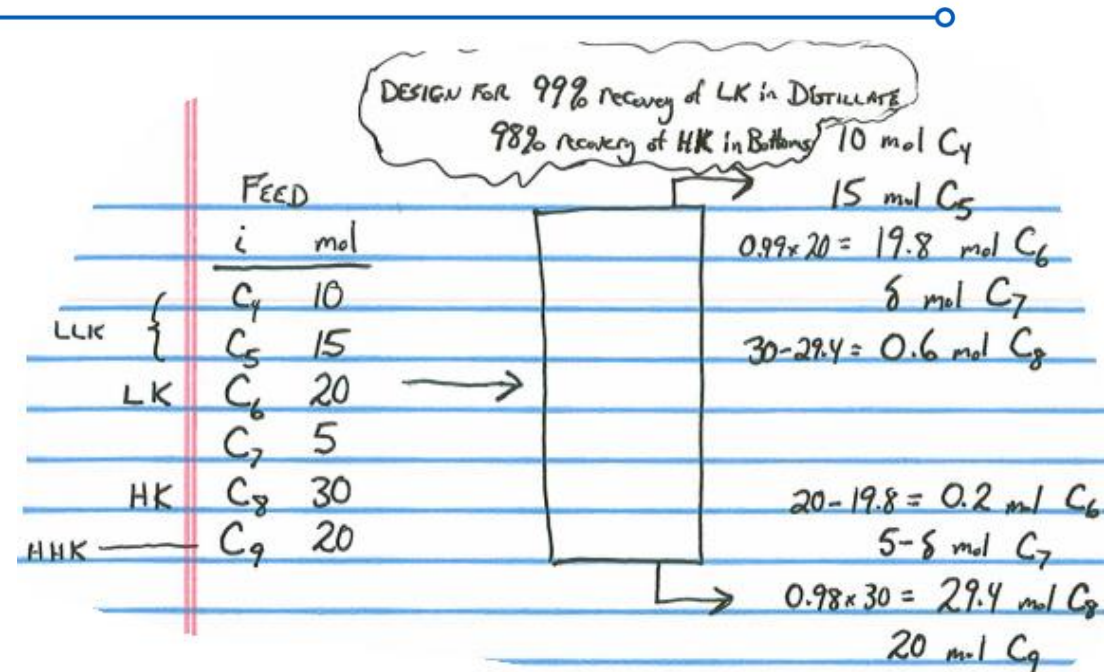 DESIGN FOR 99% recovery of LK in DISTILLATE
98% recovery of HK in Bottoms
FEED
i mol
LLK { C4 10
C5 15
LK C6 20
C7 5
HK C8 30
HHK C9 20
10 mol C4
15 mol C5
0.99×20 = 19.8 mol C6
δ mol C7
30-29.4 = 0.6 mol C8
20-19.8 = 0.2 mol C6
5-δ mol C7
0.98×30 = 29.4 mol C8
20 mol C9